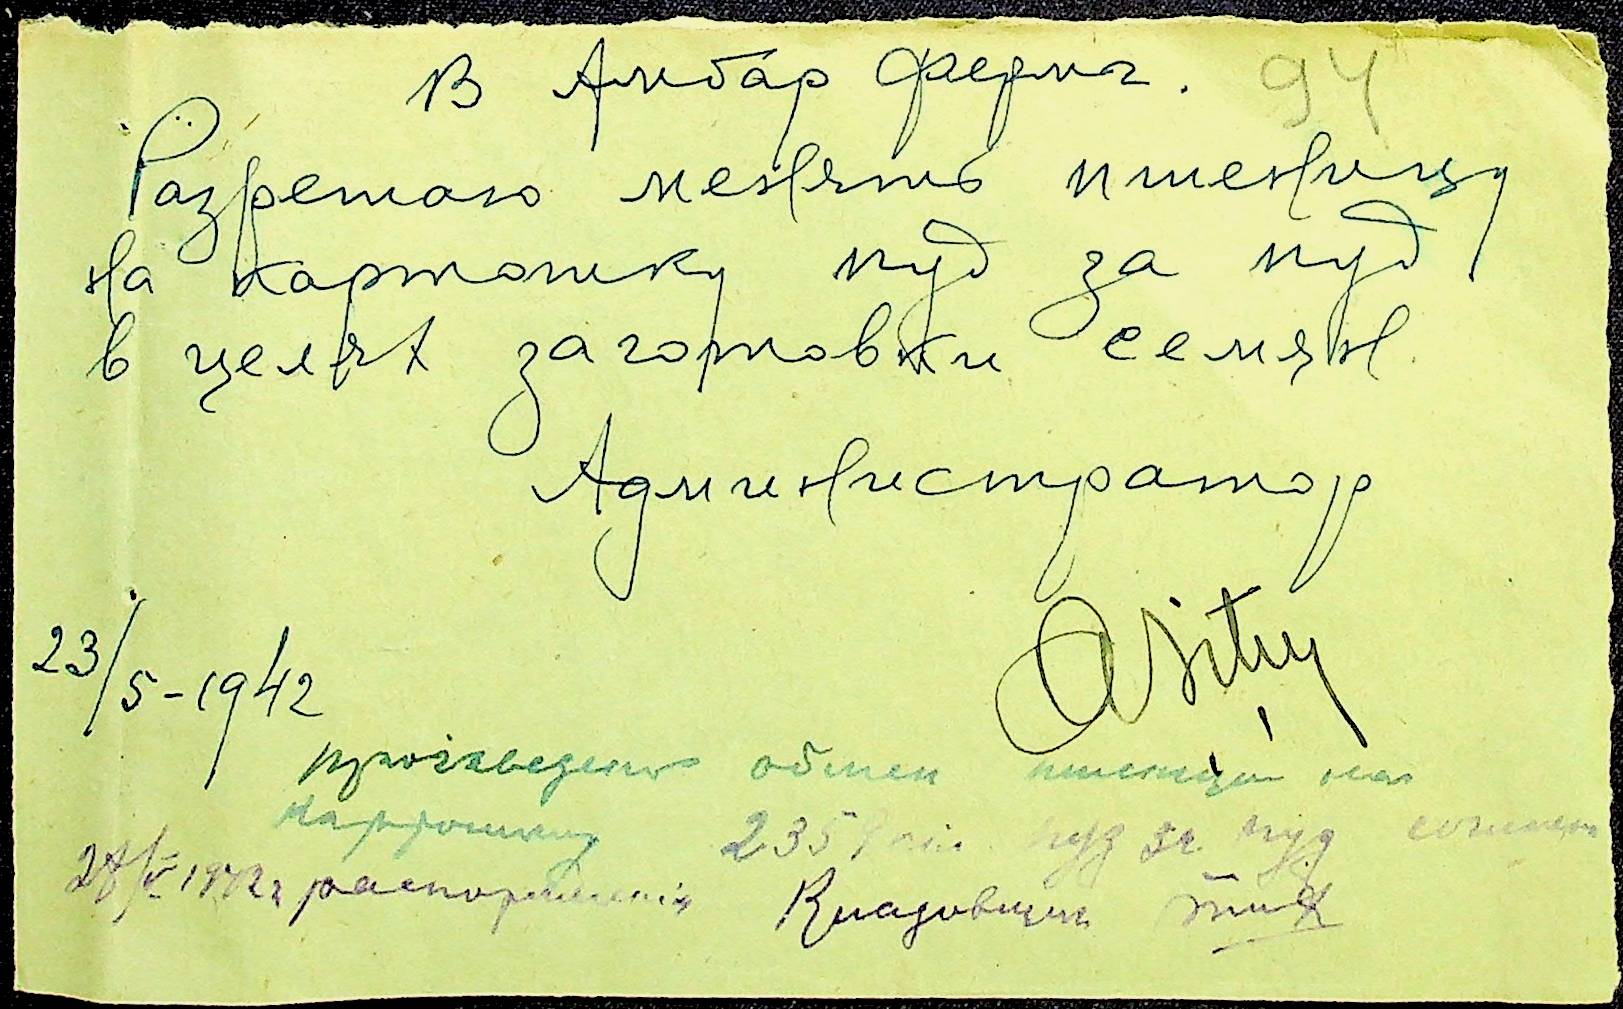 В Амбар фермы. 94
Разрешаю менять пшеницу
на картошку пуд за пуд
в целях заготовки семян.
Администратор
23/5-1942
Произведено обмен пшеници на
картошку 235 пуд за пуд
28/V 1942 г распоряжения Кладовщик